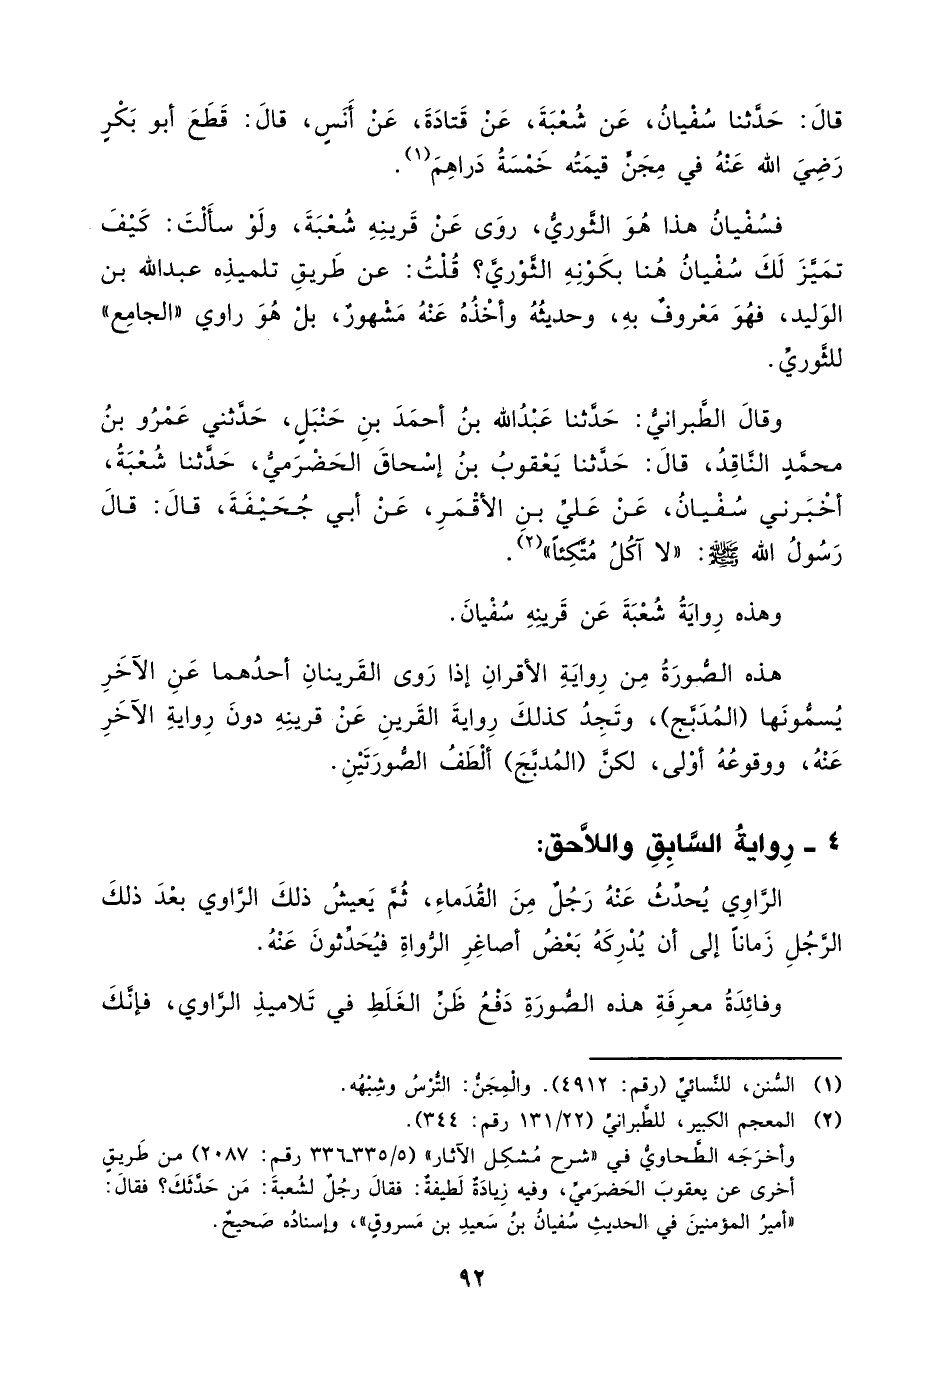 قالَ: حَدَّثنا سُفْيانُ، عَن شُعْبَةَ، عَنْ قَتادَةَ، عَنْ أَنَسٍ، قالَ: قَطَعَ أبو بَكْرٍ
رَضِيَ الله عَنْهُ في مِجَنٍّ قيمَتُه خَمْسَةُ دَراهِمَ(١).
فسُفْيانُ هذا هُوَ الثَّوريُّ، روَى عَنْ قَرينِهِ شُعْبَةَ، ولَوْ سألْتَ: كَيْفَ
تميَّزَ لَكَ سُفْيانُ هُنا بكَوْنِهِ الثَّوْريَّ؟ قُلْتُ: عن طَريقِ تلميذِه عبدالله بن
الوَليد، فهُوَ مَعْروفٌ بهِ، وحديثُهُ وأخْذُهُ عَنْهُ مَشْهورٌ، بلْ هُوَ راوي «الجامِع»
للثَّوريِّ.
وقالَ الطَّبرانيُّ: حَدَّثنا عَبْدُالله بنُ أحمَدَ بنِ حَنْبَلٍ، حَدَّثني عَمْرُو بنُ
محمَّدٍ النَّاقِدُ، قالَ: حَدَّثنا يَعْقوبُ بنُ إسْحاقَ الحَضْرَميُّ، حَدَّثنا شُعْبَةُ،
أخْبَرني سُفْيانُ، عَنْ عَليِّ بنِ الأقْمَرِ، عَنْ أبي جُحَيْفَةَ، قالَ: قالَ
رَسُولُ الله ﷺ: «لا آكُلُ مُتَّكِئاً»(٢).
وهذه رِوايَةُ شُعْبَةَ عَن قَرينِهِ سُفْيانَ.
هذه الصُّورَةُ مِن رِوايَةِ الأقرانِ إذا رَوى القَرينانِ أحدُهما عَنِ الآخَرِ
يُسمُّونَها (المُدَبَّج)، وتَجِدُ كذلكَ رِوايةَ القَرينِ عَنْ قرينِهِ دونَ رِوايةِ الآخَرِ
عَنْهُ، ووقوعُهُ أوْلى، لكنَّ (المُدبَّجَ) ألْطَفُ الصُّورَتَيْنِ.
٤ ـ رِوايةُ السَّابِقِ واللاَّحق:
الرَّاوِي يُحدِّثُ عَنْهُ رَجُلٌ مِنَ القُدَماءِ، ثُمَّ يَعيشُ ذلكَ الرَّاوي بعْدَ ذلكَ
الرَّجُلِ زَماناً إلى أن يُدْرِكَهُ بَعْضُ أصاغِرِ الرُّواةِ فيُحَدِّثونَ عَنْهُ.
وفائِدَةُ معرِفَةِ هذه الصُّورَةِ دَفْعُ ظَنِّ الغَلَطِ في تَلاميذِ الرَّاوي، فإنَّكَ
(١) السُّنن، للنَّسائيِّ (رقم: ٤٩١٢). والْمِجَنُّ: التُّرْسُ وشِبْهُه.
(٢) المعجم الكبير، للطَّبرانيِّ (١٣١/٢٢ رقم: ٣٤٤).
وأخرَجَه الطَّحاويُّ في «شرح مُشكِل الآثار» (٣٣٦ـ٣٣٥/٥ رقم: ٢٠٨٧) من طَريقٍ
أخرى عن يعقوبَ الحَضرَميِّ، وفيه زِيادَةٌ لَطيفةٌ: فقالَ رجُلٌ لشُعبةَ: مَن حَدَّثَكَ؟ فقالَ:
«أميرُ المؤمنينَ في الحديثِ سُفيانُ بنُ سَعيدِ بن مَسروقٍ»، وإسنادُه صَحيحٌ.
٩٢